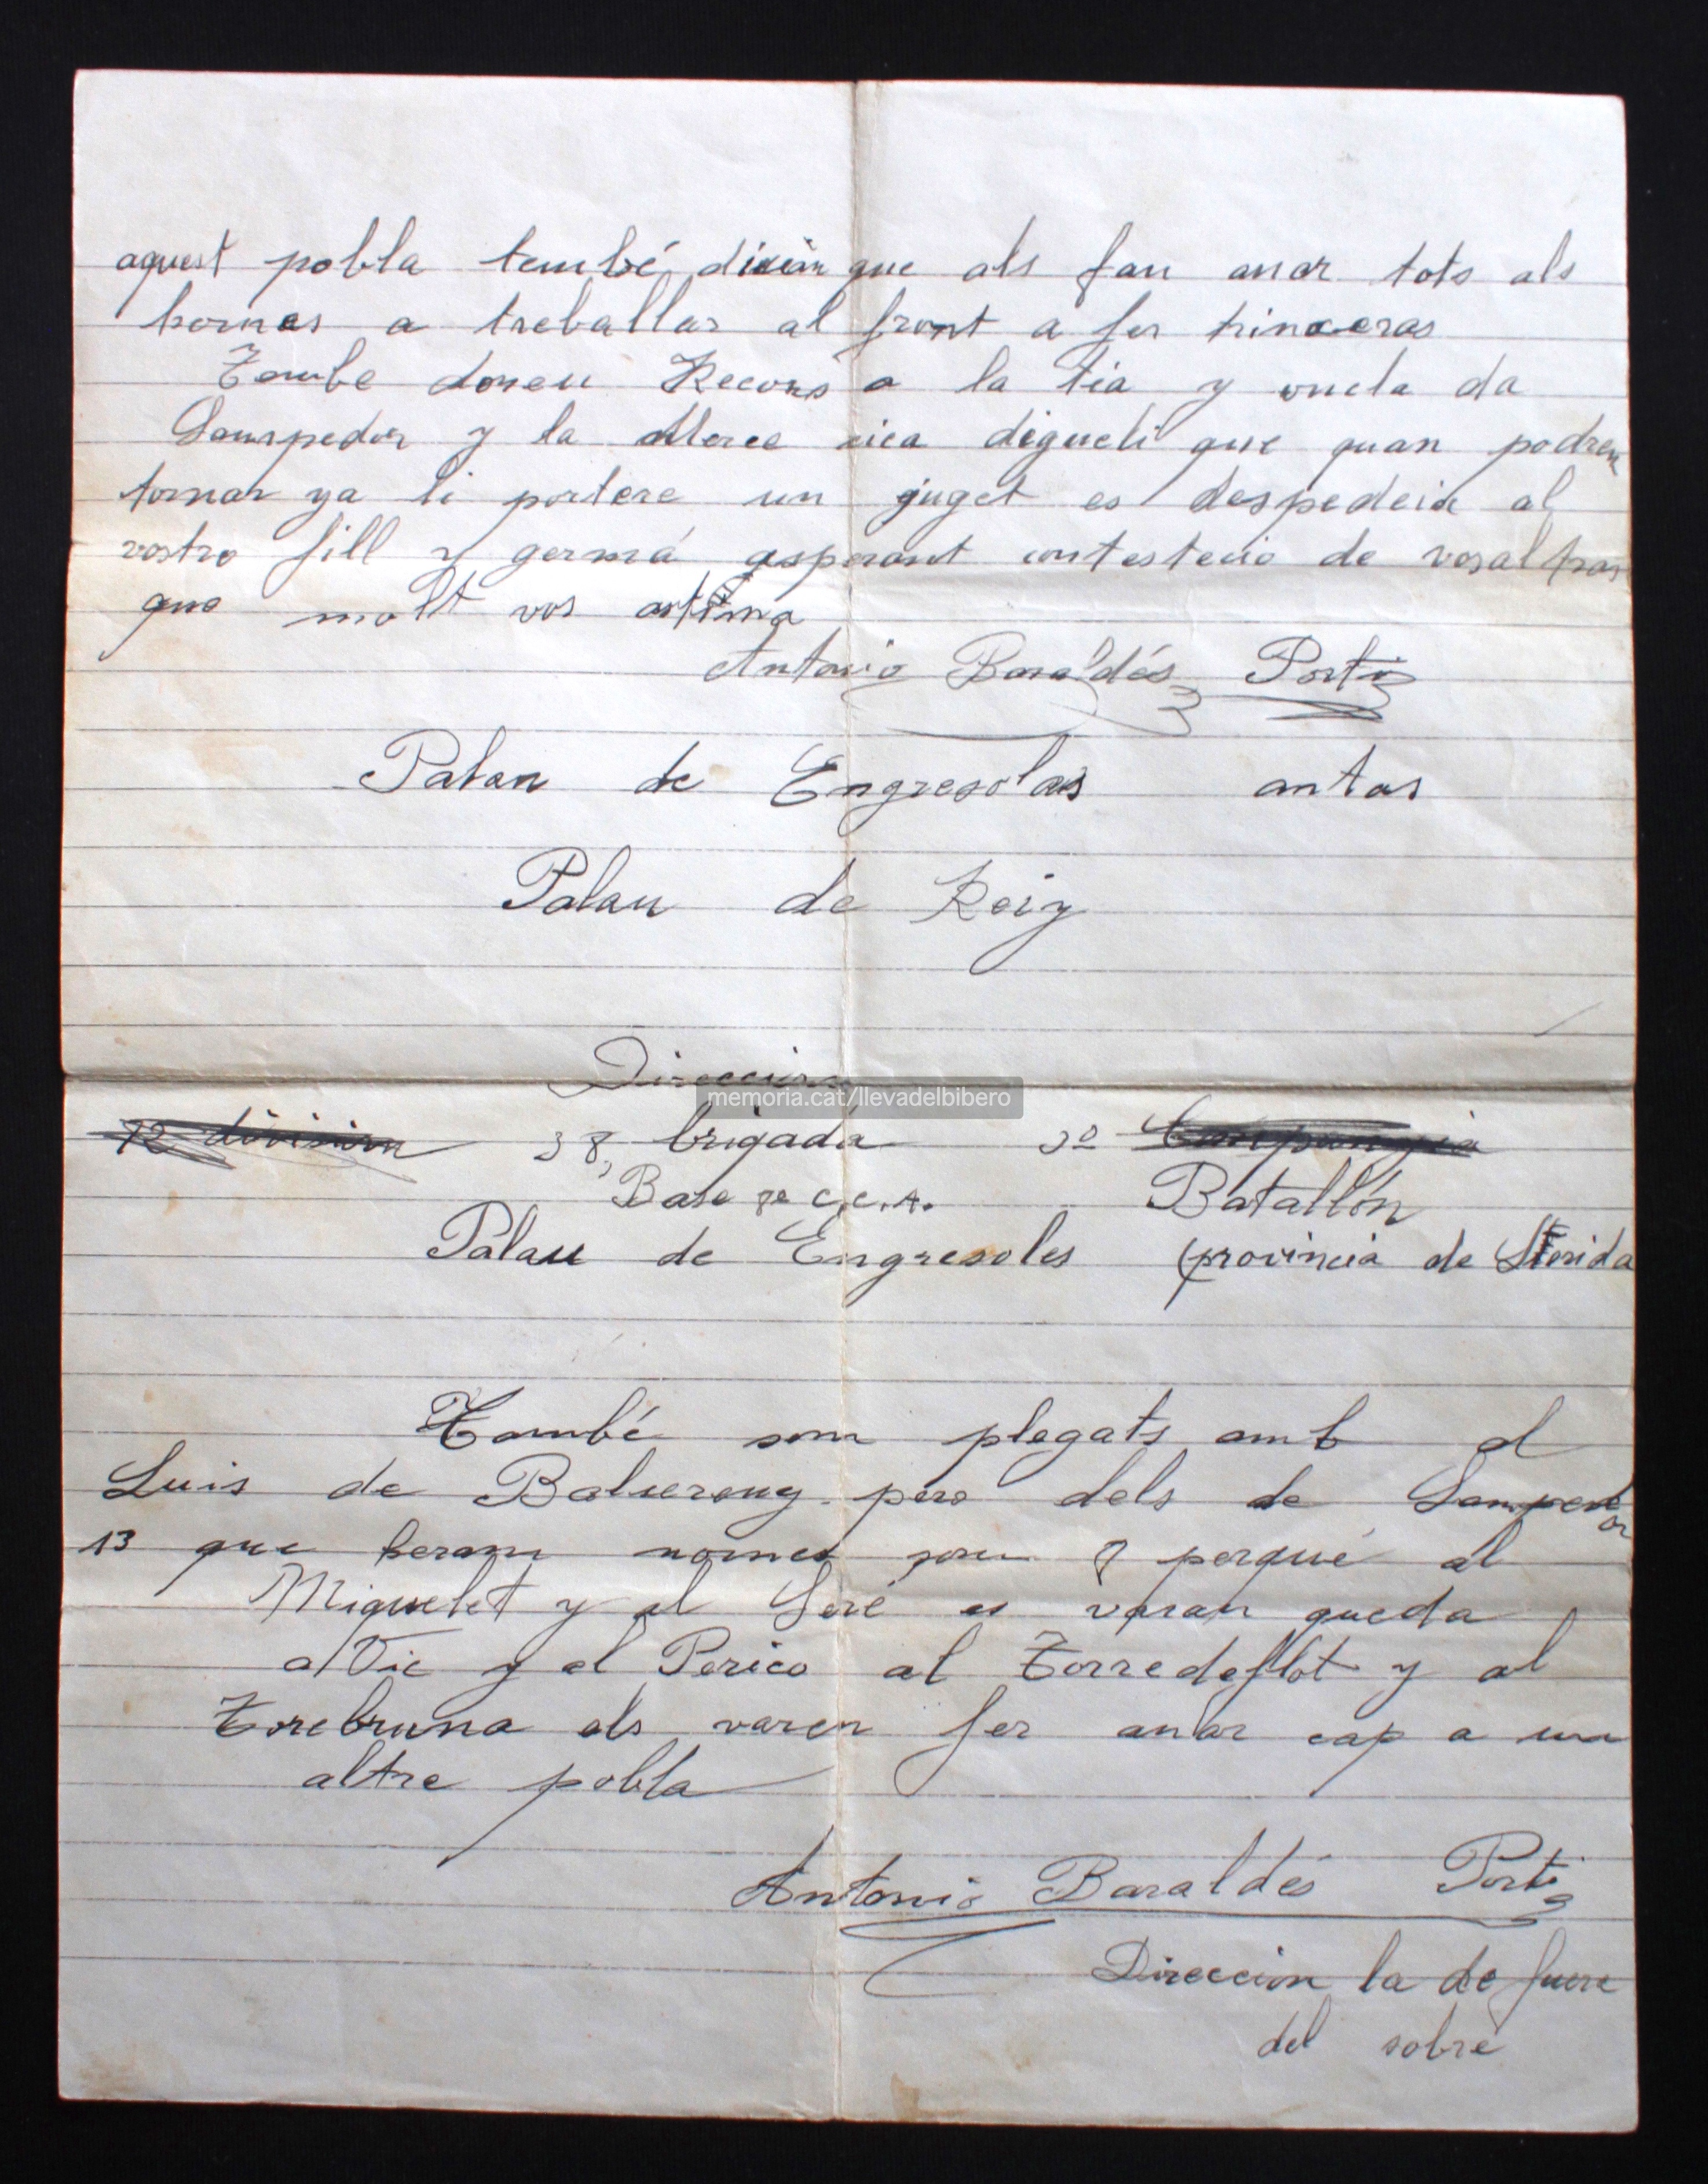 aquest pobla també diuen que als fan anar tots als
homes a treballar al front a fer trinxeras
Tambe doneu Recors a la tia y oncla da
Sampedor y la Merce xica digueli que quan podrem
tornar ya li portere un juget es despedeix al
vostro fill y germá asperant contestecio de vosaltras
que molt vos astima
Antonio Baraldés Portí
Palau de Engresolas antas
Palau de Reig
Direccion
72 division 38, brigada 3º Companyia
Base 7e C.C.A. Batallón
Palau de Engresoles (provincia de Llerida
També som plegats amb el
Luis de Balsereny pero dels de Sampedor
13 que heram nomes som 8 perqué al
Miquelet y al Seré es varan queda
a Vic y al Perico al Torredeflot y al
Torebruna als varen fer anar cap a un
altre pobla
Antonio Baraldés Portí
Direccion la de fuera
del sobre
memoria.cat/llevadelbibero